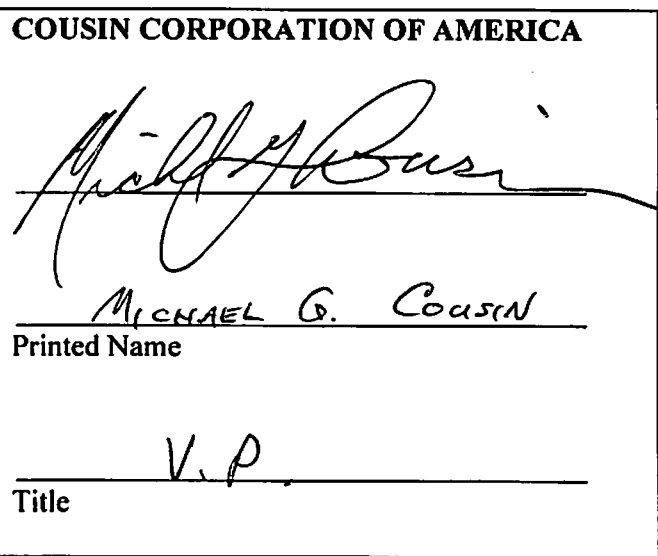 COUSIN CORPORATION OF AMERICA
Michl G Cousin
MICHAEL G. COUSIN
Printed Name
V.P.
Title